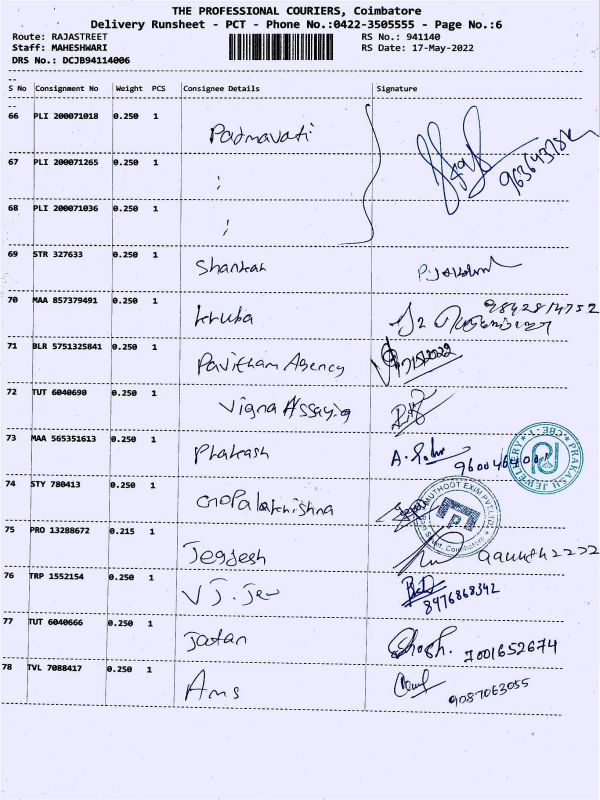 THE PROFESSIONAL COURIERS, Coimbatore
Delivery Runsheet - PCT - Phone No.:0422-3505555 - Page No.:6
Route: RAJASTREET RS No.: 941140
Staff: MAHESHWARI RS Date: 17-May-2022
DRS No.: DCJB94114006
S No Consignment No Weight PCS Consignee Details Signature
66 PLI 200071018 0.250 1 Padmavati
67 PLI 200071265 0.250 1
68 PLI 200071036 0.250 1
69 STR 327633 0.250 1 Shankar
70 MAA 857379491 0.250 1 kruba 9842814752
71 BLR 5751325841 0.250 1 Pavitham Agency
72 TUT 6040690 0.250 1 Vigna Assaying
73 MAA 565351613 0.250 1 Phakash
PRAKASH JEWELLERY
74 STY 780413 0.250 1 Gopalakrishna
MUTHOOT EXIM PVT LTD
75 PRO 13288672 0.215 1 Jegdesh
76 TRP 1552154 0.250 1 VJ. Jew 8476868342
77 TUT 6040666 0.250 1 Jatan 7001652674
78 TVL 7088417 0.250 1 Ams 9087063055